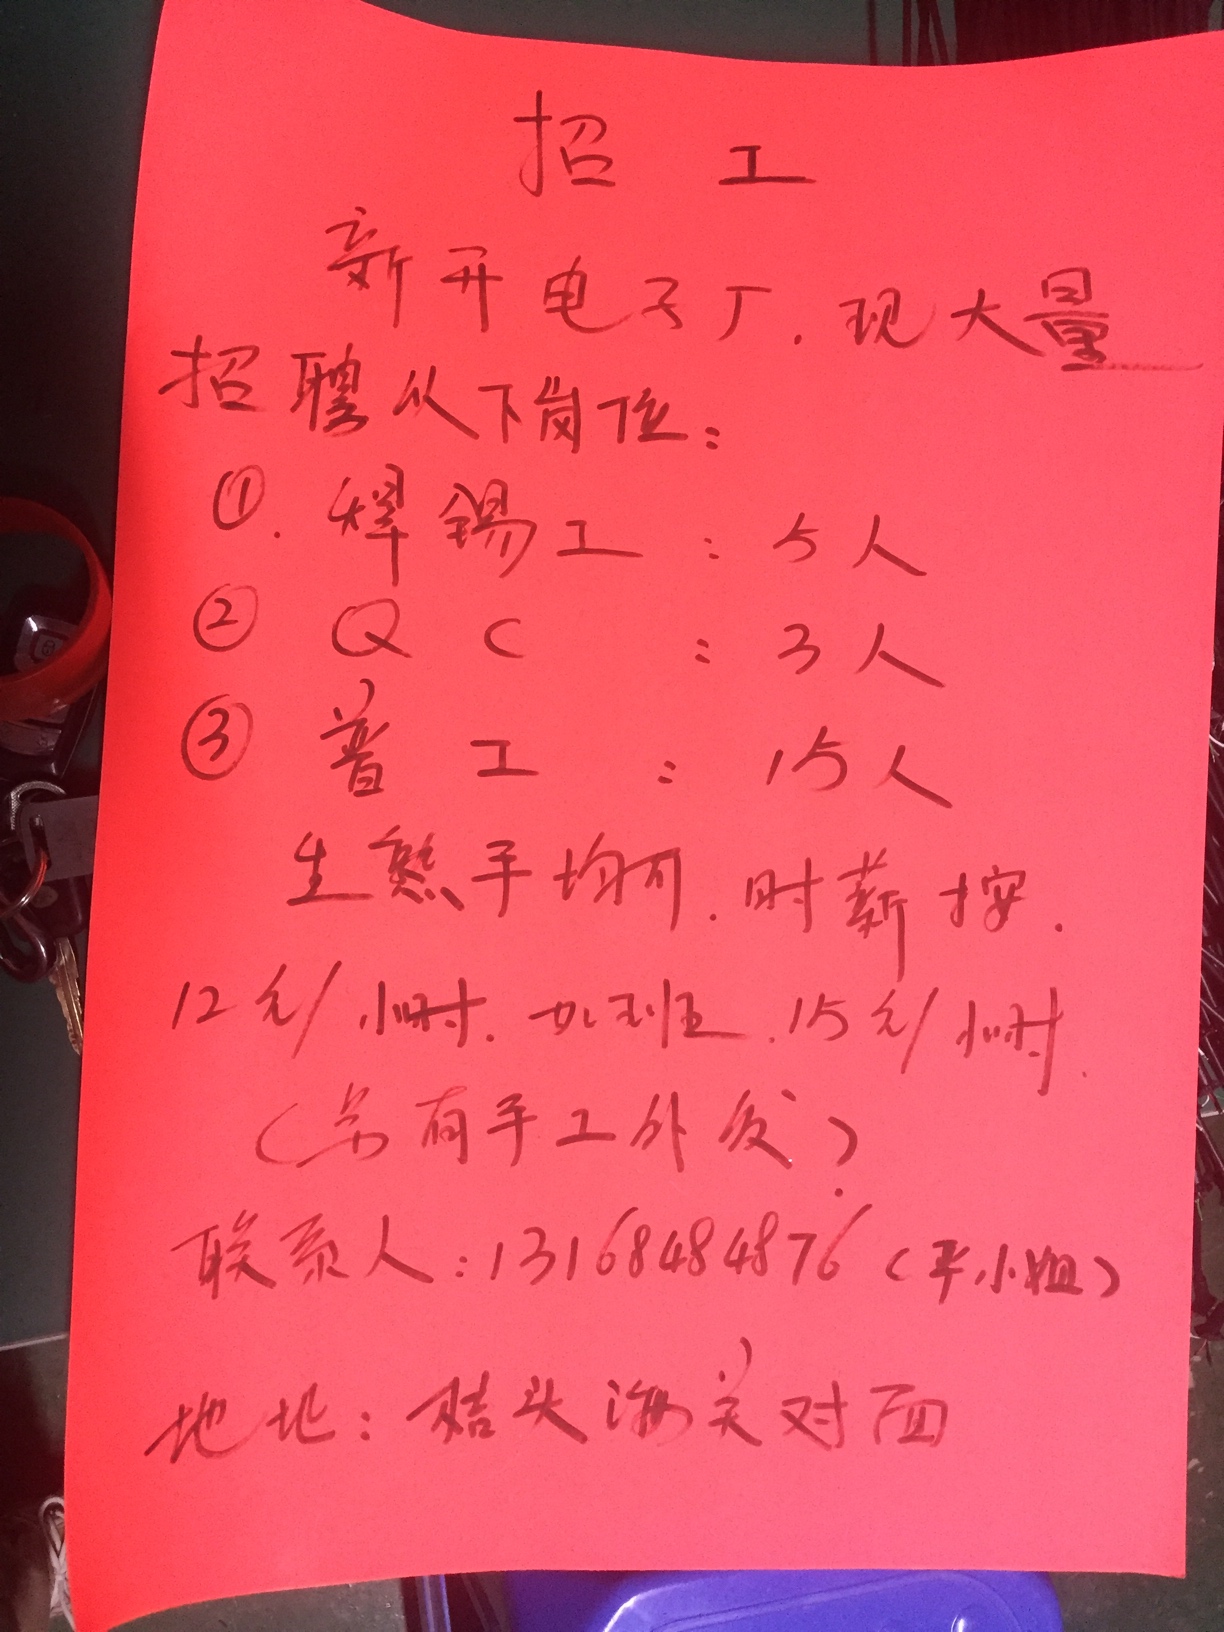 招工
新开电子厂.现大量
招聘从下岗位:
①.焊锡工:5人
②QC:3人
③普工:15人
生熟手均可.时薪按.
12元/小时.加班.15元/小时.
(另有手工外发).
联系人:13168484876(平小姐)
地址:头海关对面